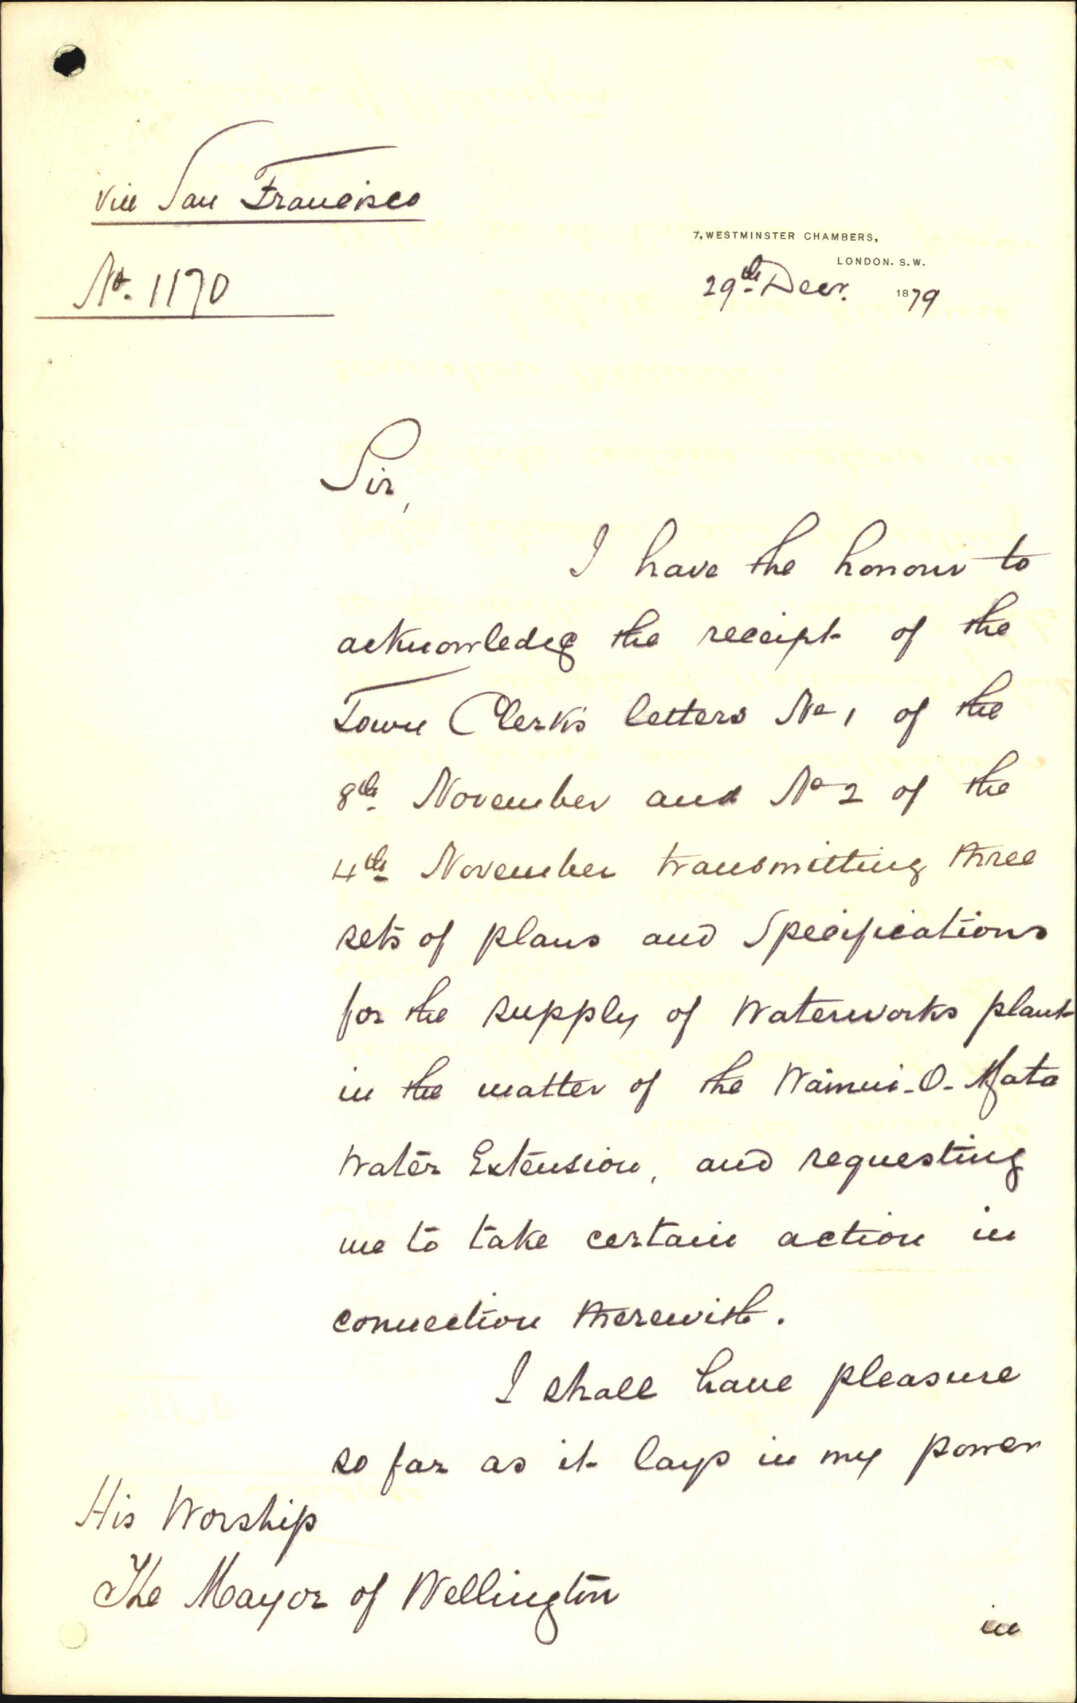 via San Francisco
No. 1170
7, WESTMINSTER CHAMBERS,
LONDON. S.W.
29th Decr. 1879
Sir,
I have the honour to
acknowledge the receipt of the
Town Clerk's letters No 1 of the
8th November and No 2 of the
4th November transmitting three
sets of plans and Specifications
for the supply of Waterworks plant
in the matter of the Wainui-O-Mata
Water Extension, and requesting
me to take certain action in
connection therewith.
I shall have pleasure
so far as it lays in my power
His Worship
The Mayor of Wellington
in